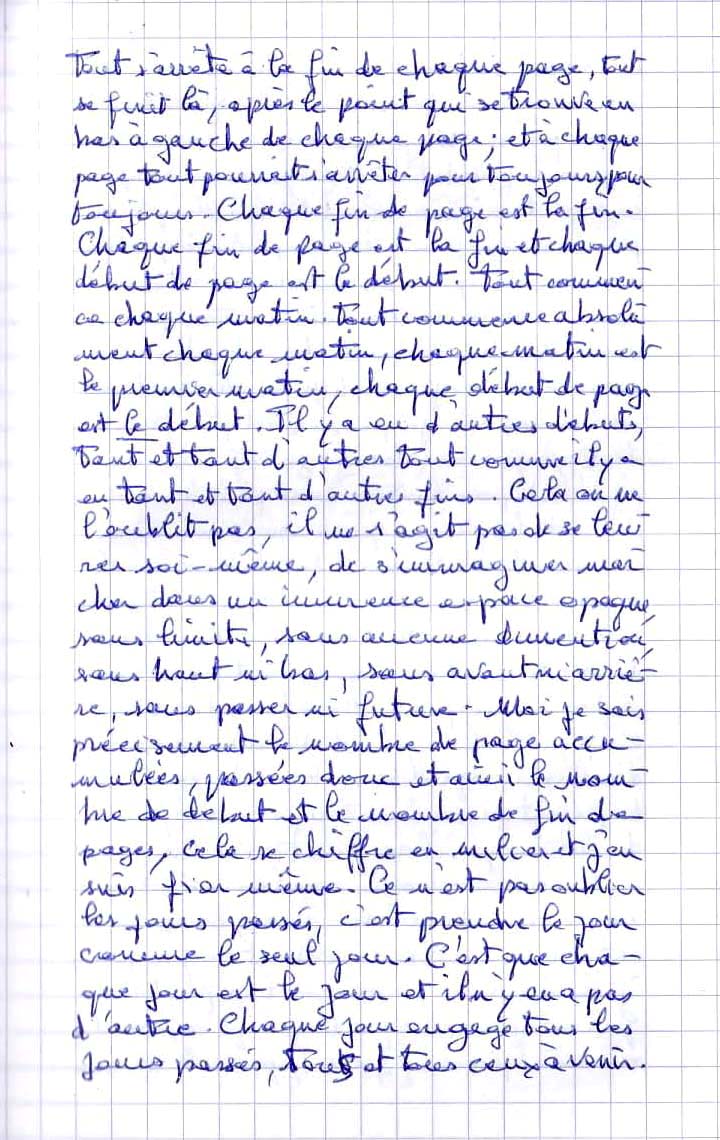 Tout s'arrête à la fin de chaque page, tout
se finit là, après le point qui se trouve en
bas à gauche de chaque page ; et à chaque
page tout pourrait s'arrêter pour toujours, pour
toujours. Chaque fin de page est la fin.
Chaque fin de page est la fin et chaque
début de page est le début. Tout commen
ce chaque matin. Tout commence absolu
ment chaque matin, chaque matin est
le premier matin, chaque début de page
est le début. Il y a eu d'autres débuts,
tant et tant d'autres tout comme il y a
eu tant et tant d'autres fins. Cela on ne
l'oublit pas, il ne s'agit pas de se leur
rer soi-même, de s'immaginer mar
cher dans un immence espace opaque,
sans limite, sans aucune dimention,
sans haut ni bas, sans avant ni arriè-
re, sans passer ni future. Moi je sais
précisement le nombre de page accu-
mulées, passées donc et aussi le nom-
bre de début et le nombre de fin de
pages, cela se chiffre en milier et j'en
suis fier même. Ce n'est pas oublier
les jours passés, c'est prendre le jour
comme le seul jour. C'est que cha-
que jour est le jour et il n'y en a pas
d'autre. Chaque jour engage tous les
jours passés, tous et tous ceux à venir.